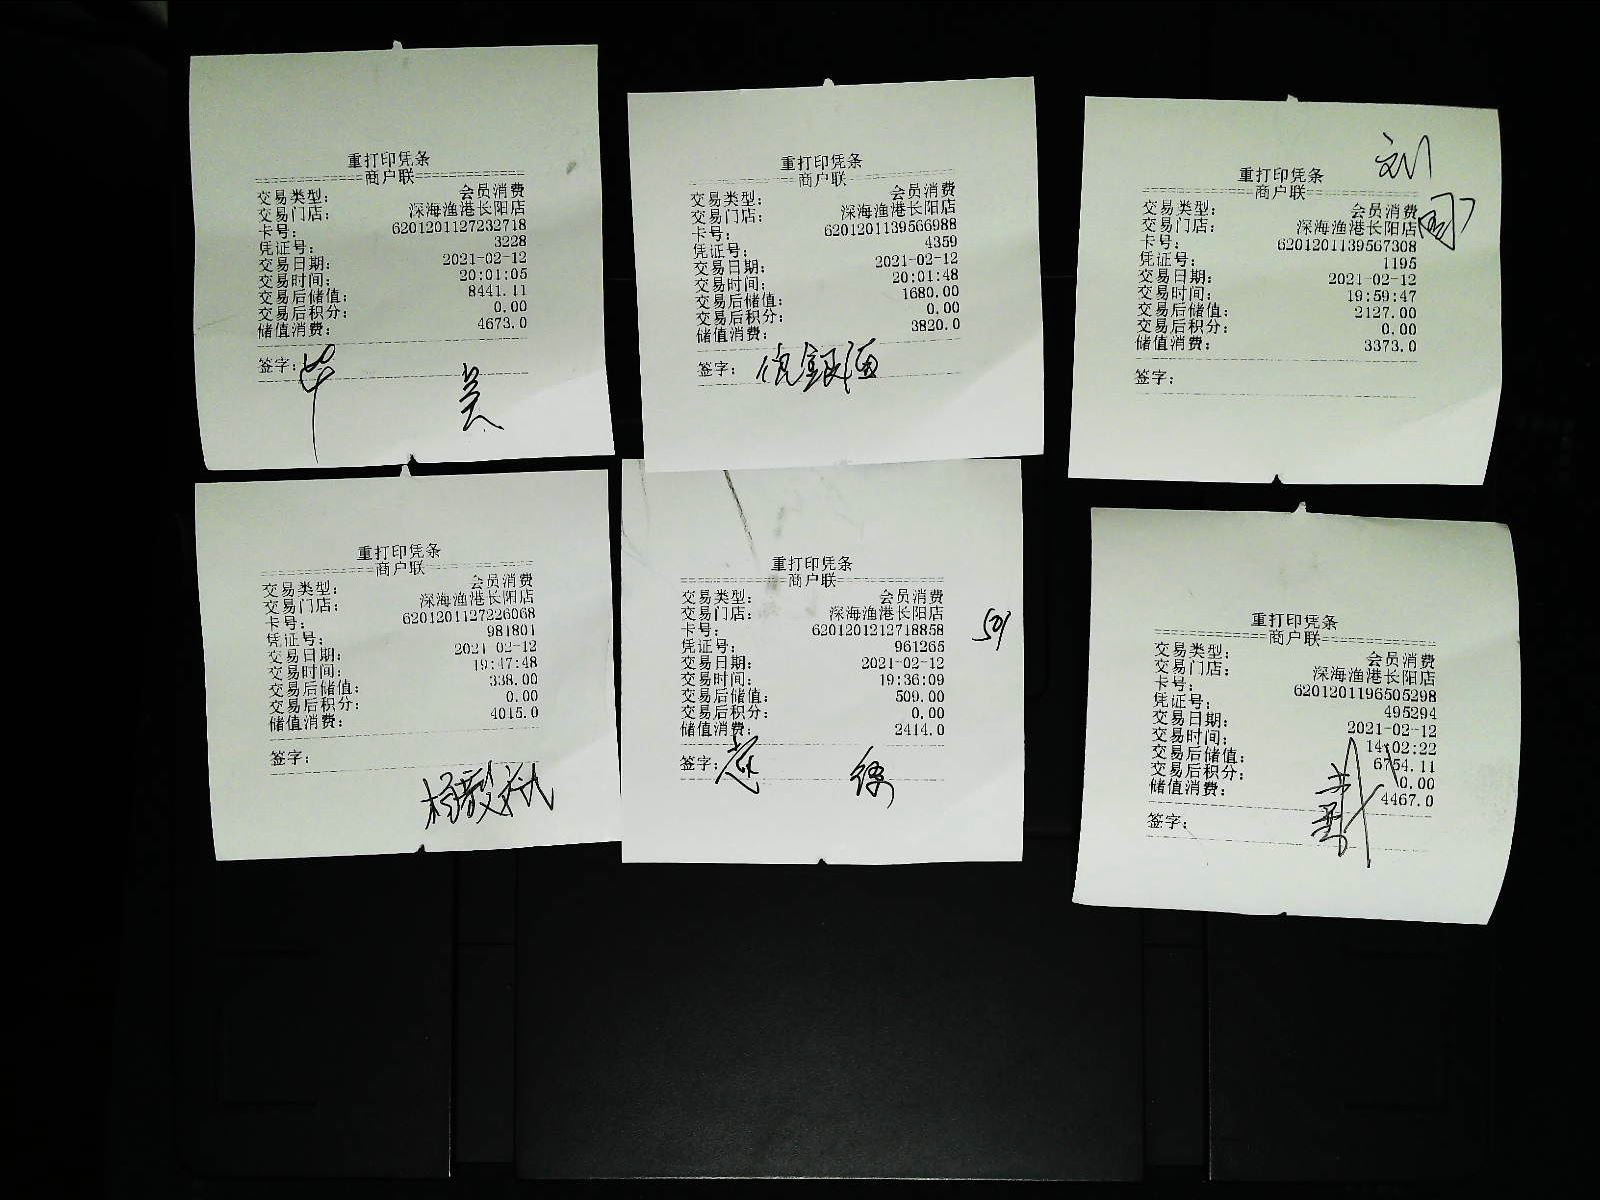 重打印凭条
商户联
交易类型： 会员消费
交易门店： 深海渔港长阳店
卡号： 6201201127232718
凭证号： 3228
交易日期： 2021-02-12
交易时间： 20:01:05
交易后储值： 8441.11
交易后积分： 0.00
储值消费： 4673.0
签字：
重打印凭条
商户联
交易类型： 会员消费
交易门店： 深海渔港长阳店
卡号： 6201201139566988
凭证号： 4359
交易日期： 2021-02-12
交易时间： 20:01:48
交易后储值： 1680.00
交易后积分： 0.00
储值消费： 3820.0
签字：
刘
重打印凭条
商户联
交易类型： 会员消费
交易门店： 深海渔港长阳店
卡号： 6201201139567308
凭证号： 1195
交易日期： 2021-02-12
交易时间： 19:59:47
交易后储值： 2127.00
交易后积分： 0.00
储值消费： 3373.0
签字：
重打印凭条
商户联
交易类型： 会员消费
交易门店： 深海渔港长阳店
卡号： 6201201127226068
凭证号： 981801
交易日期： 2021-02-12
交易时间： 19:47:48
交易后储值： 338.00
交易后积分： 0.00
储值消费： 4015.0
签字：
重打印凭条
商户联
交易类型： 会员消费
交易门店： 深海渔港长阳店
卡号： 6201201212718858
凭证号： 961265
交易日期： 2021-02-12
交易时间： 19:36:09
交易后储值： 509.00
交易后积分： 0.00
储值消费： 2414.0
签字：
重打印凭条
商户联
交易类型： 会员消费
交易门店： 深海渔港长阳店
卡号： 6201201196505298
凭证号： 495294
交易日期： 2021-02-12
交易时间： 14:02:22
交易后储值： 6754.11
交易后积分： 0.00
储值消费： 4467.0
签字：